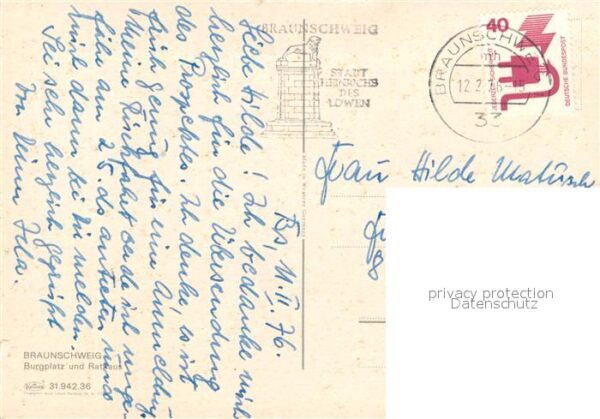 Bs, 11. II. 76.
Liebe Hilde! Ich bedanke mich
herzlich für die Übersendung
des Prospektes. Ich denke, es ist
früh genug für eine Anmeldung.
Meine Rückfahrt werde ich unge-
fähr am 25. ds antreten und
mich dann bei Dir melden.
Sei sehr herzlich gegrüßt
von Deiner Ida.
BRAUNSCHWEIG
STADT
HEINRICHS
DES
LÖWEN
BRAUNSCHWEIG
mh
12.2.76
33
40
DEUTSCHE BUNDESPOST
Frau Hilde
privacy protection
Datenschutz
BRAUNSCHWEIG
Burgplatz und Rathaus
31.942.36